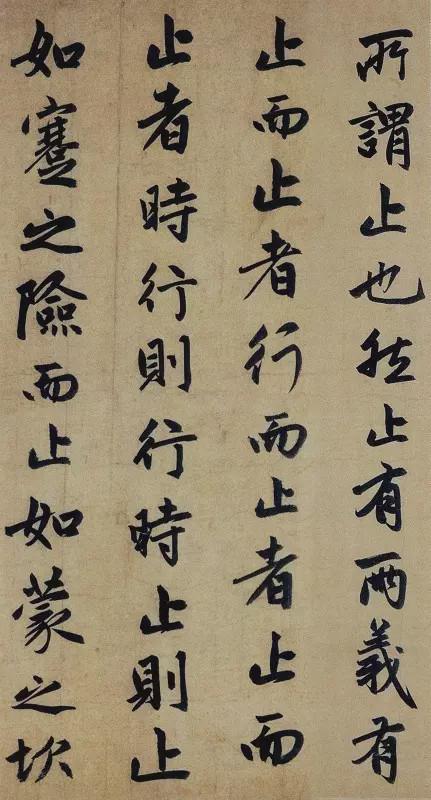 所謂止也然止有兩義有
止而止者行而止者止而
止者時行則行時止則止
如蹇之險而止如蒙之坎